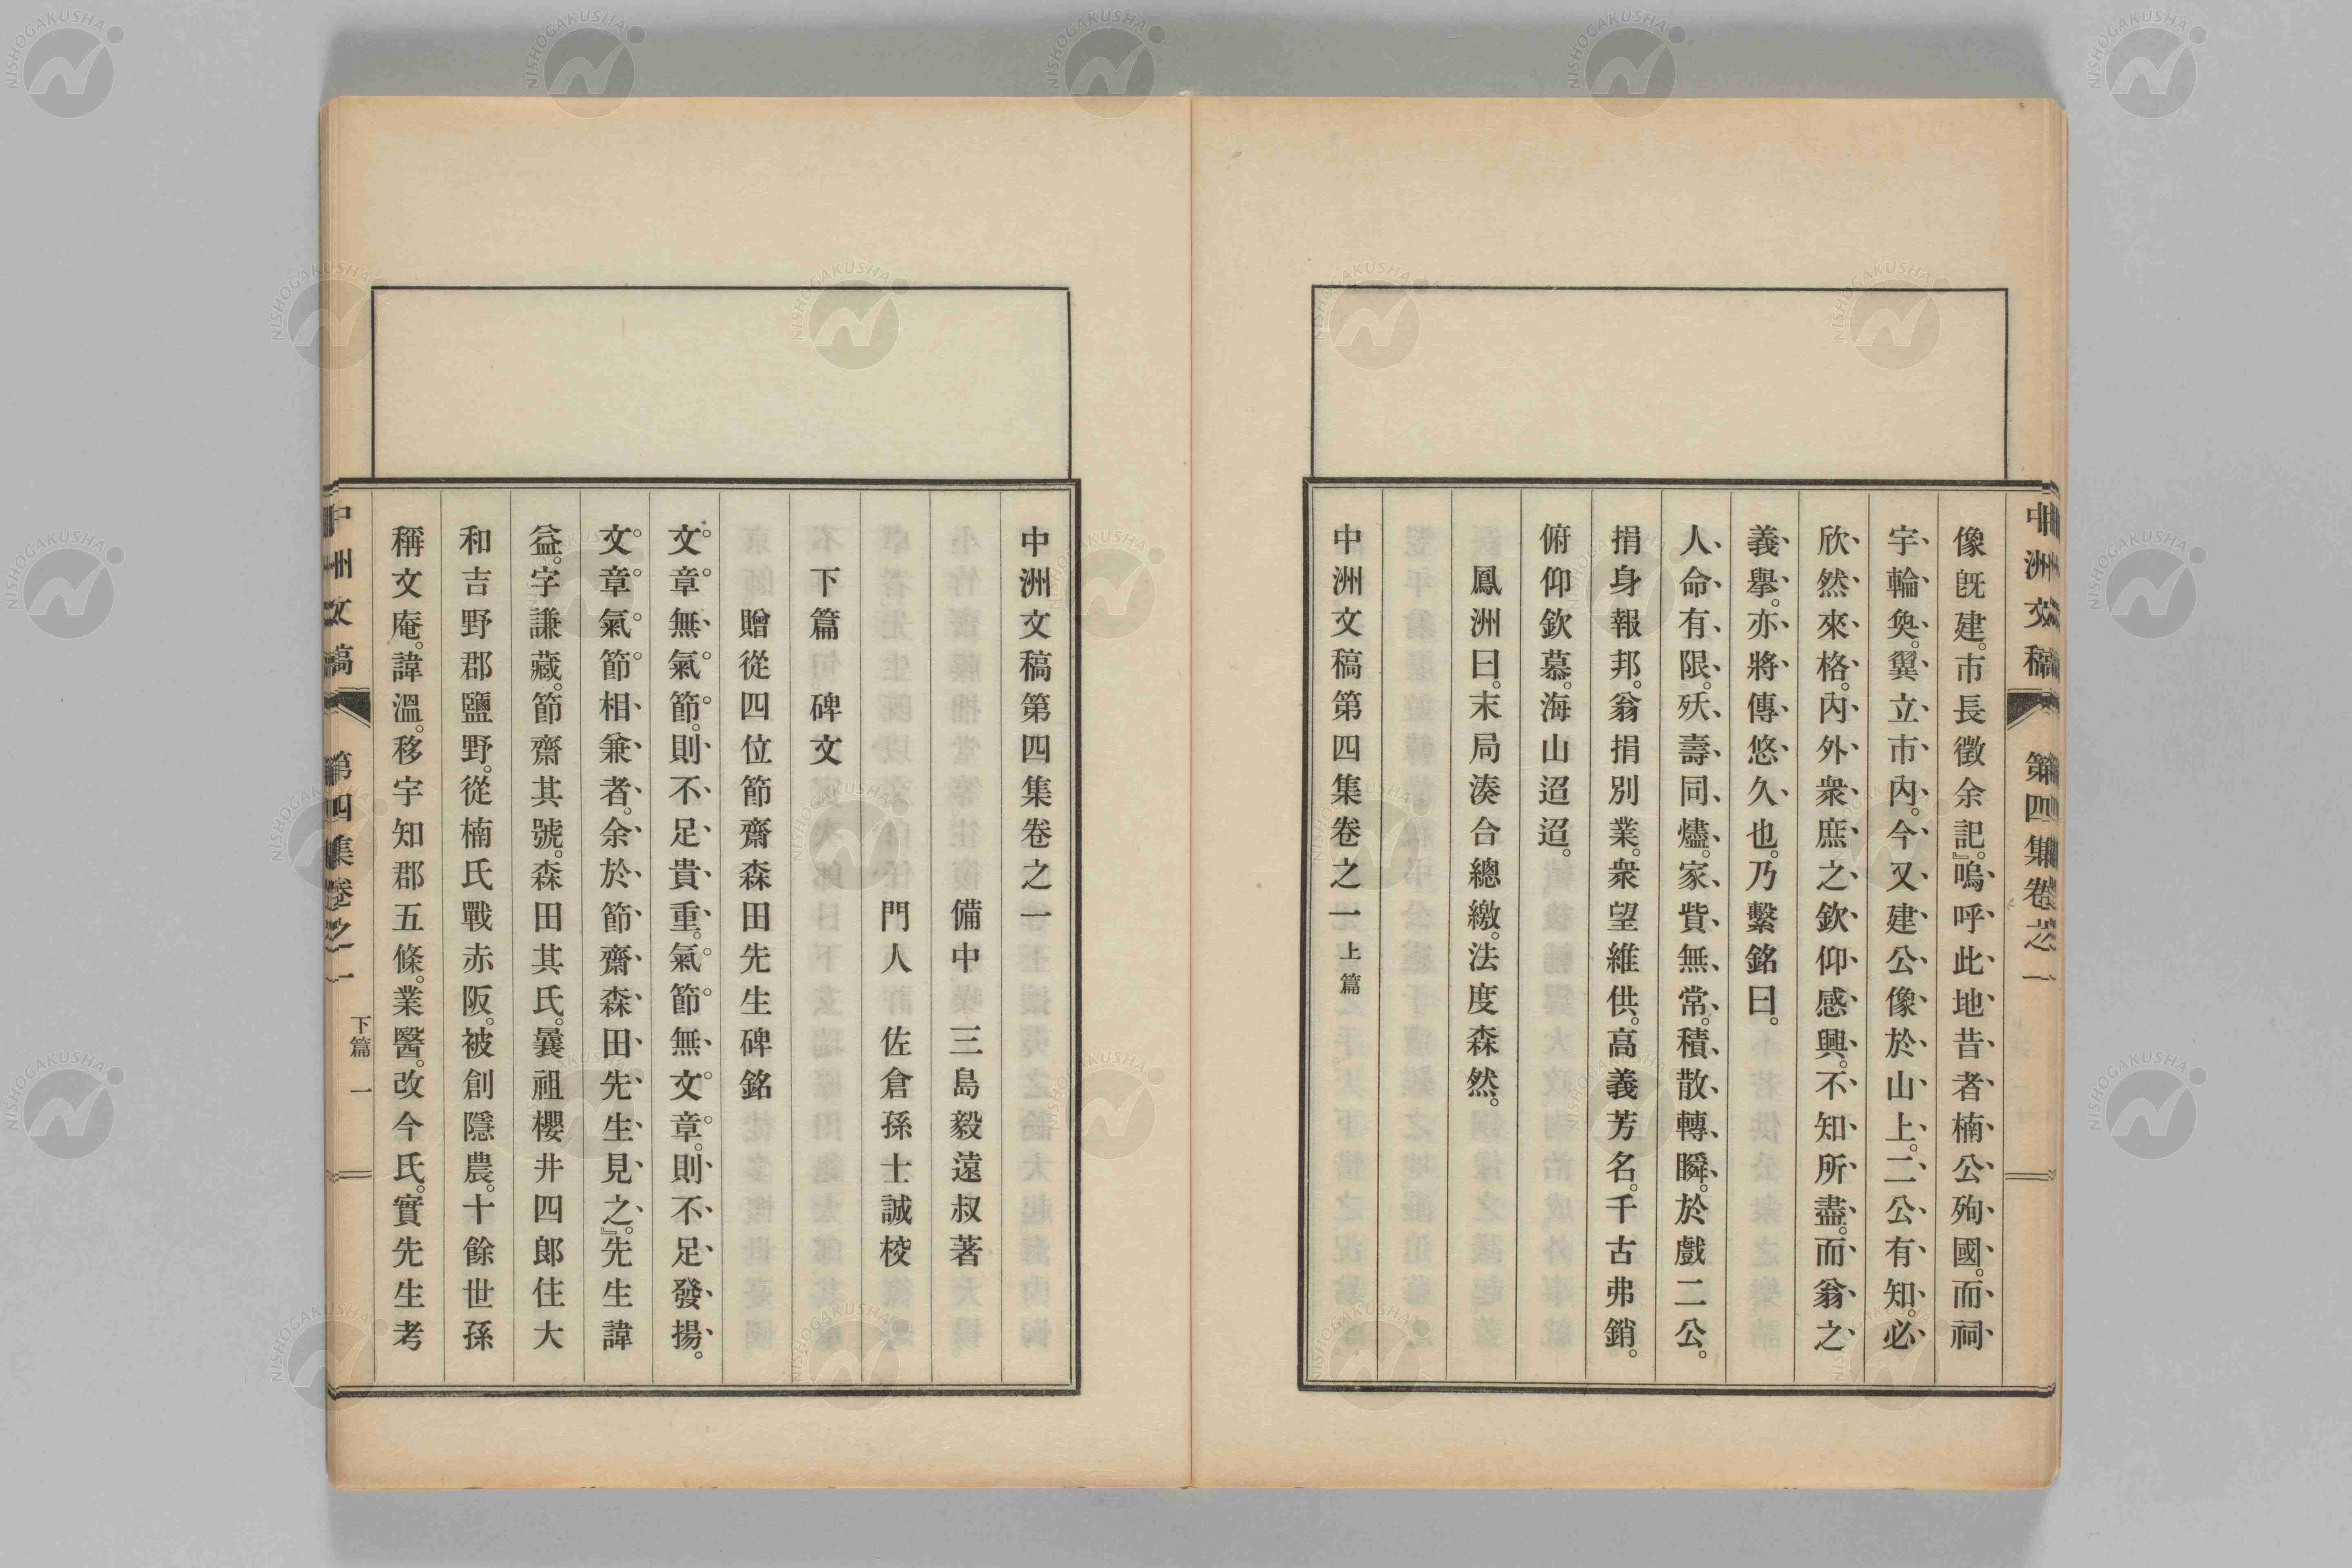 中洲文稿 第四集卷之一
像既建。市長徵余記。』嗚呼此地昔者楠公殉國。而祠
宇輪奐。翼立市內。今又建公像於山上。二公有知。必
欣然來格。內外衆庶之欽仰感興。不知所盡。而翁之
義擧。亦將傳悠久也。乃繫銘曰。
人命有限。殀壽同燼。家貲無常。積散轉瞬。於戲二公。
捐身報邦。翁捐別業。衆望維供。高義芳名。千古弗銷。
俯仰欽慕。海山迢迢。
鳳洲曰。末局湊合總繳。法度森然。
中洲文稿第四集卷之一上篇
中洲文稿第四集卷之一
備中 三島毅遠叔著
門人 佐倉孫士誠校
下篇 碑文
贈從四位節齋森田先生碑銘
文章無氣節。則不足貴重。氣節無文章。則不足發揚。
文章氣節相兼者。余於節齋森田先生見之。』先生諱
益。字謙藏。節齋其號。森田其氏。曩祖櫻井四郎住大
和吉野郡鹽野。從楠氏戰赤阪。被創隱農。十餘世孫
稱文庵。諱溫。移宇知郡五條。業醫。改今氏。實先生考
中洲文稿 第四集卷之一 下篇 一
NISHOGAKUSHA
NISHOGAKUSHA
NISHOGAKUSHA
NISHOGAKUSHA
NISHOGAKUSHA
NISHOGAKUSHA
NISHOGAKUSHA
NISHOGAKUSHA
NISHOGAKUSHA
NISHOGAKUSHA
NISHOGAKUSHA
NISHOGAKUSHA
NISHOGAKUSHA
NISHOGAKUSHA